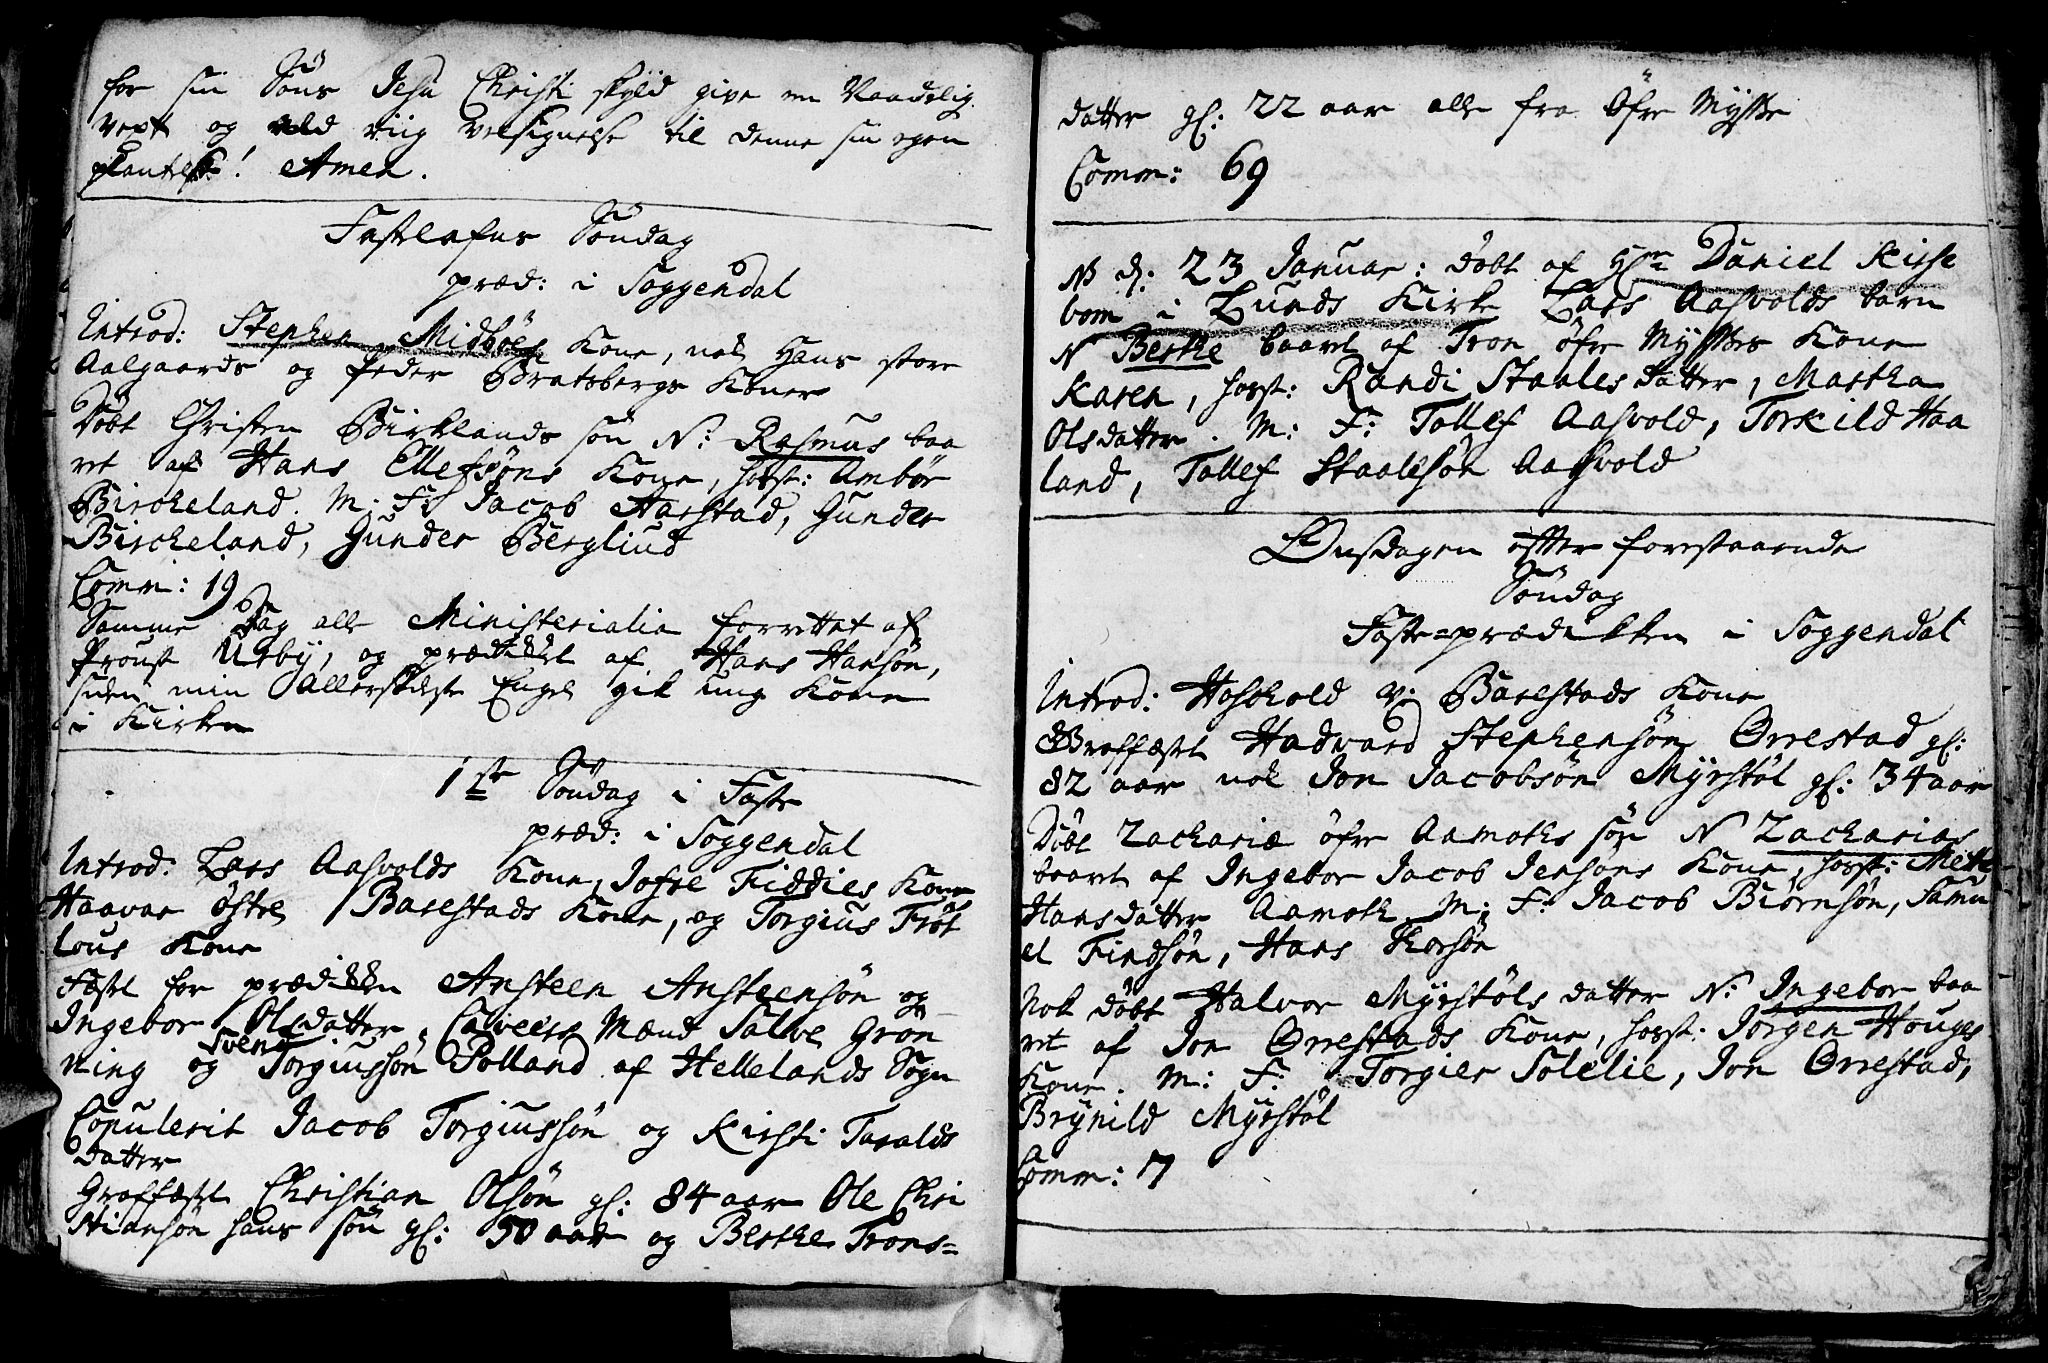 for sin Søns Jesu Christi skyld give en Naadelig
vext og riig velsignelse til denne sin egen
plantelse! Amen.
Fastelafns Søndag
præd: i Soggendal
Introd: Stephen Midbøes Kone, nok Hans store
Aalgaards og Peder Bratsbergs Koner
Døbt Christen Birklands søn N: Rasmus baa
ret af Hans Ellefsøns Kone, hofst: Ambør
Birckeland. M: F: Jacob Aarstad, Gunder
Birckeland, Gunder Bergliud
Comm: 19
Samme Dag alle Ministerialia forrettet af
Proust Urby, og prædiket af Hans Hansøn,
siden min Allerkiereste Engel gik ung Kone
i Kirken
1ste Søndag i Faste
præd: i Soggendal
Introd: Lars Aasvolds Kone, Jofse Fiddies Kone
Haavar østre Barestads Kone, og Torgius Frøt
lous Kone
Fæst for prædiken Ansteen Ansteensøn og
Ingebor Olsdatter, Caveers Mænd Salve Grøn
ning og Svend Torgiussøn Polland af Hellelands Sogn
Copulerit Jacob Torgiussøn og Kirsti Taralds
datter
Graffæst Christian Olsøn gl: 84 aar Ole Chri
stiansøn hans søn gl: 50 aar og Berthe Trons=
datter gl: 22 aar alle fra Øfre Mysse
Comm: 69
NB d: 23 Januar: døbt af Hr Daniel Kirse
bom i Lunds Kirke Lars Aasvolds barn
N Berthe baaret af Tron øfre Mysses Kone
Karen, hofst: Randi Staalesdatter, Martha
Olsdatter. M: F: Tollef Aasvold, Torkild Haa
land, Tollef Staalesøn Aasvold
Onsdagen efter forestaaende
Søndag
Faste=prædikken i Soggendal
Introd: Hoskold v: Barestads Kone
Graffæst Hadvard Stephensøn Ørrestad gl:
82 aar nok Jon Jacobsøn Myrstøl gl: 34 aar
Døbt Zachariæ øfre Aamoths søn N Zacharias
baaret af Ingebor Jacob Jensøns Kone, hofst: Mette
Hansdatter Aamoth M: F: Jacob Biørnsøn, Samu
el Findsøn, Hans Thorsøn
Nok døbt Halvor Myrstøls datter N: Ingebor baa
ret af Jon Ørrestads Kone, hofst: Jørgen Houges
Kone. M: F: Torgier Solelie, Jon Ørrestad,
Brynild Myrstøl
Comm: 7